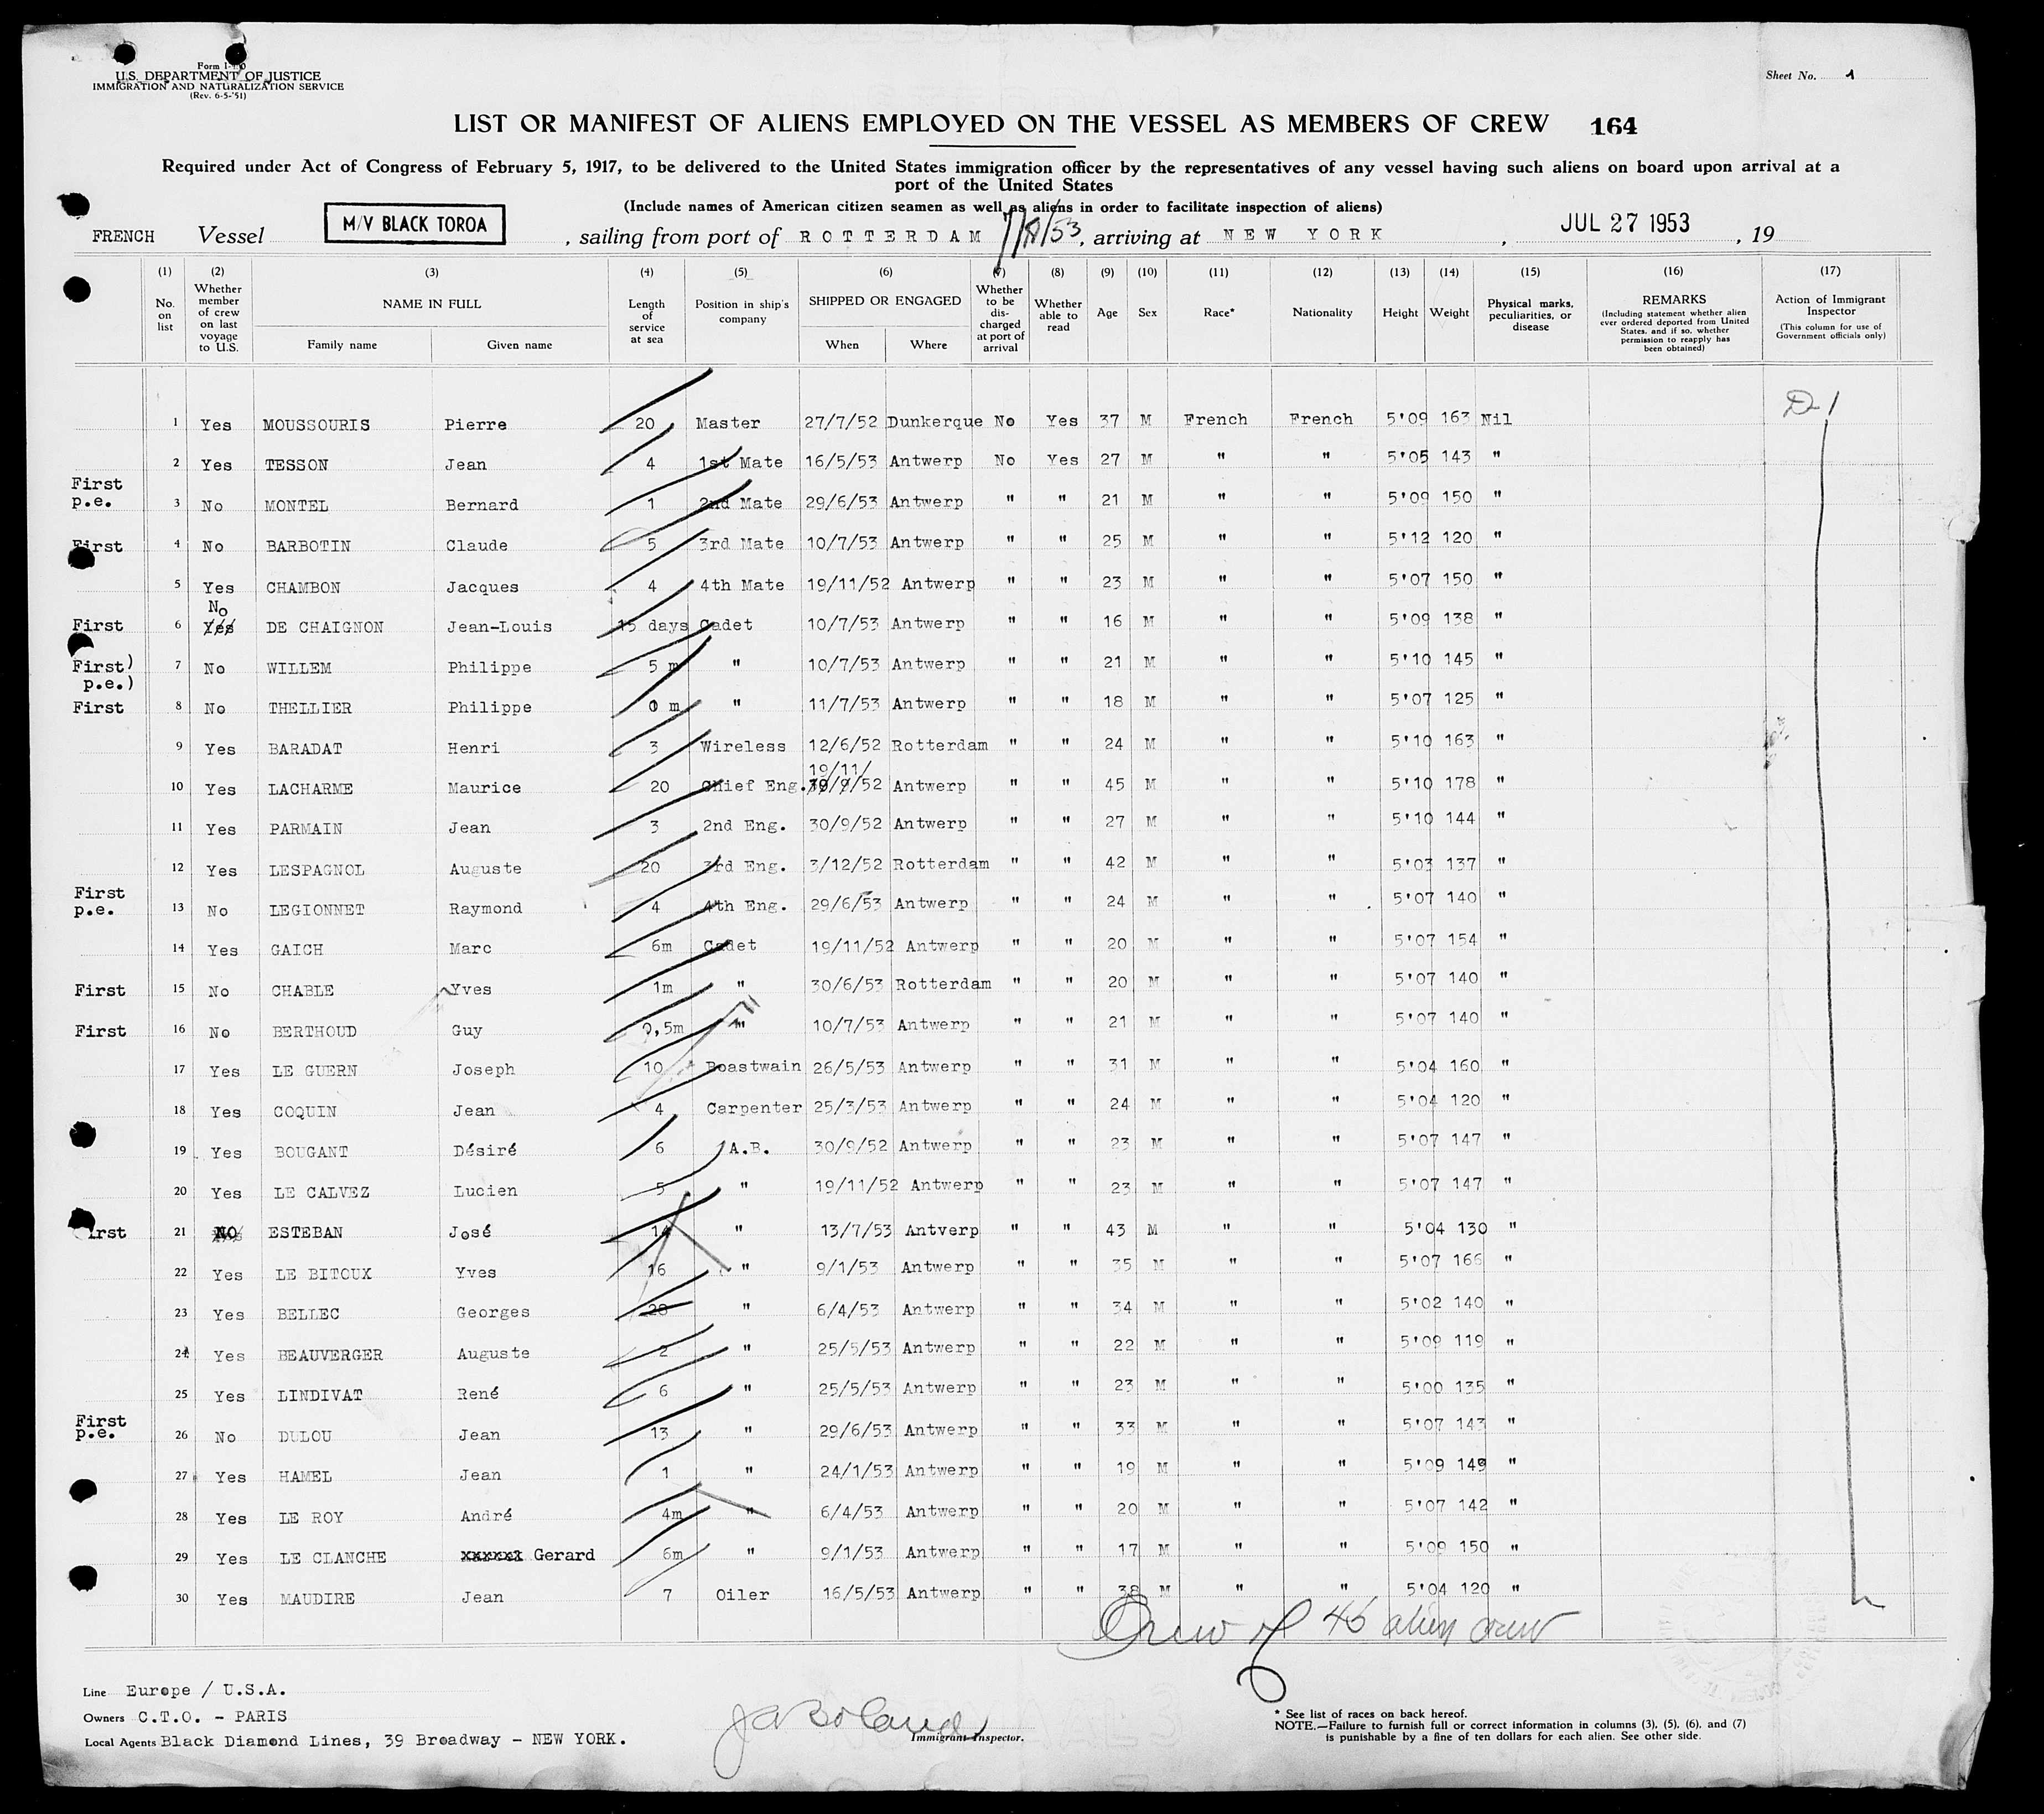 Form I-480
U.S. DEPARTMENT OF JUSTICE
IMMIGRATION AND NATURALIZATION SERVICE
(Rev. 6-5-'51)
Sheet No. 1
LIST OR MANIFEST OF ALIENS EMPLOYED ON THE VESSEL AS MEMBERS OF CREW 164
Required under Act of Congress of February 5, 1917, to be delivered to the United States immigration officer by the representatives of any vessel having such aliens on board upon arrival at a
port of the United States
(Include names of American citizen seamen as well as aliens in order to facilitate inspection of aliens)
FRENCH Vessel M/V BLACK TOROA, sailing from port of ROTTERDAM 7/18/53, arriving at NEW YORK, JUL 27 1953, 19
(1) No. on list (2) Whether member of crew on last voyage to U.S. (3) NAME IN FULL Family name Given name (4) Length of service at sea (5) Position in ship's company (6) SHIPPED OR ENGAGED When Where (7) Whether to be discharged at port of arrival (8) Whether able to read (9) Age (10) Sex (11) Race* (12) Nationality (13) Height (14) Weight (15) Physical marks, peculiarities, or disease (16) REMARKS (Including statement whether alien ever ordered deported from United States, and if so, whether permission to reapply has been obtained) (17) Action of Immigrant Inspector (This column for use of Government officials only)
D-1
1 Yes MOUSSOURIS Pierre 20 Master 27/7/52 Dunkerque No Yes 37 M French French 5'09 163 Nil
2 Yes TESSON Jean 4 1st Mate 16/5/53 Antwerp No Yes 27 M " " 5'05 143 "
First p.e. 3 No MONTEL Bernard 1 2nd Mate 29/6/53 Antwerp " " 21 M " " 5'09 150 "
First 4 No BARBOTIN Claude 5 3rd Mate 10/7/53 Antwerp " " 25 M " " 5'12 120 "
5 Yes CHAMBON Jacques 4 4th Mate 19/11/52 Antwerp " " 23 M " " 5'07 150 "
First 6 No Yes DE CHAIGNON Jean-Louis 15 days Cadet 10/7/53 Antwerp " " 16 M " " 5'09 138 "
First) p.e.) 7 No WILLEM Philippe 5 m " 10/7/53 Antwerp " " 21 M " " 5'10 145 "
First 8 No THELLIER Philippe 0 m " 11/7/53 Antwerp " " 18 M " " 5'07 125 "
9 Yes BARADAT Henri 3 Wireless 12/6/52 Rotterdam " " 24 M " " 5'10 163 "
10 Yes LACHARME Maurice 20 Chief Eng. 19/11/ 30/9/52 Antwerp " " 45 M " " 5'10 178 "
11 Yes PARMAIN Jean 3 2nd Eng. 30/9/52 Antwerp " " 27 M " " 5'10 144 "
12 Yes LESPAGNOL Auguste 20 3rd Eng. 3/12/52 Rotterdam " " 42 M " " 5'03 137 "
First p.e. 13 No LEGIONNET Raymond 4 4th Eng. 29/6/53 Antwerp " " 24 M " " 5'07 140 "
14 Yes GAICH Marc 6m Cadet 19/11/52 Antwerp " " 20 M " " 5'07 154 "
First 15 No CHABLE Yves 1m " 30/6/53 Rotterdam " " 20 M " " 5'07 140 "
First 16 No BERTHOUD Guy 0,5m " 10/7/53 Antwerp " " 21 M " " 5'07 140 "
17 Yes LE GUERN Joseph 10 Boastwain 26/5/53 Antwerp " " 31 M " " 5'04 160 "
18 Yes COQUIN Jean 4 Carpenter 25/3/53 Antwerp " " 24 M " " 5'04 120 "
19 Yes BOUGANT Désiré 6 A.B. 30/9/52 Antwerp " " 23 M " " 5'07 147 "
20 Yes LE CALVEZ Lucien 5 " 19/11/52 Antwerp " " 23 M " " 5'07 147 "
First 21 NO ESTEBAN José 14 " 13/7/53 Antverp " " 43 M " " 5'04 130 "
22 Yes LE BITOUX Yves 16 " 9/1/53 Antwerp " " 35 M " " 5'07 166 "
23 Yes BELLEC Georges 28 " 6/4/53 Antwerp " " 34 M " " 5'02 140 "
24 Yes BEAUVERGER Auguste 2 " 25/5/53 Antwerp " " 22 M " " 5'09 119 "
25 Yes LINDIVAT René 6 " 25/5/53 Antwerp " " 23 M " " 5'00 135 "
First p.e. 26 No DULOU Jean 13 " 29/6/53 Antwerp " " 33 M " " 5'07 143 "
27 Yes HAMEL Jean 1 " 24/1/53 Antwerp " " 19 M " " 5'09 149 "
28 Yes LE ROY André 4m " 6/4/53 Antwerp " " 20 M " " 5'07 142 "
29 Yes LE CLANCHE Gerard 6m " 9/1/53 Antwerp " " 17 M " " 5'09 150 "
30 Yes MAUDIRE Jean 7 Oiler 16/5/53 Antwerp " " 38 M " " 5'04 120 "
Crew of 46 alien crew
Line Europe / U.S.A.
Owners C.T.O. - PARIS
Local Agents Black Diamond Lines, 39 Broadway - NEW YORK.
J A Boland
Immigrant Inspector.
* See list of races on back hereof.
NOTE.—Failure to furnish full or correct information in columns (3), (5), (6), and (7)
is punishable by a fine of ten dollars for each alien. See other side.